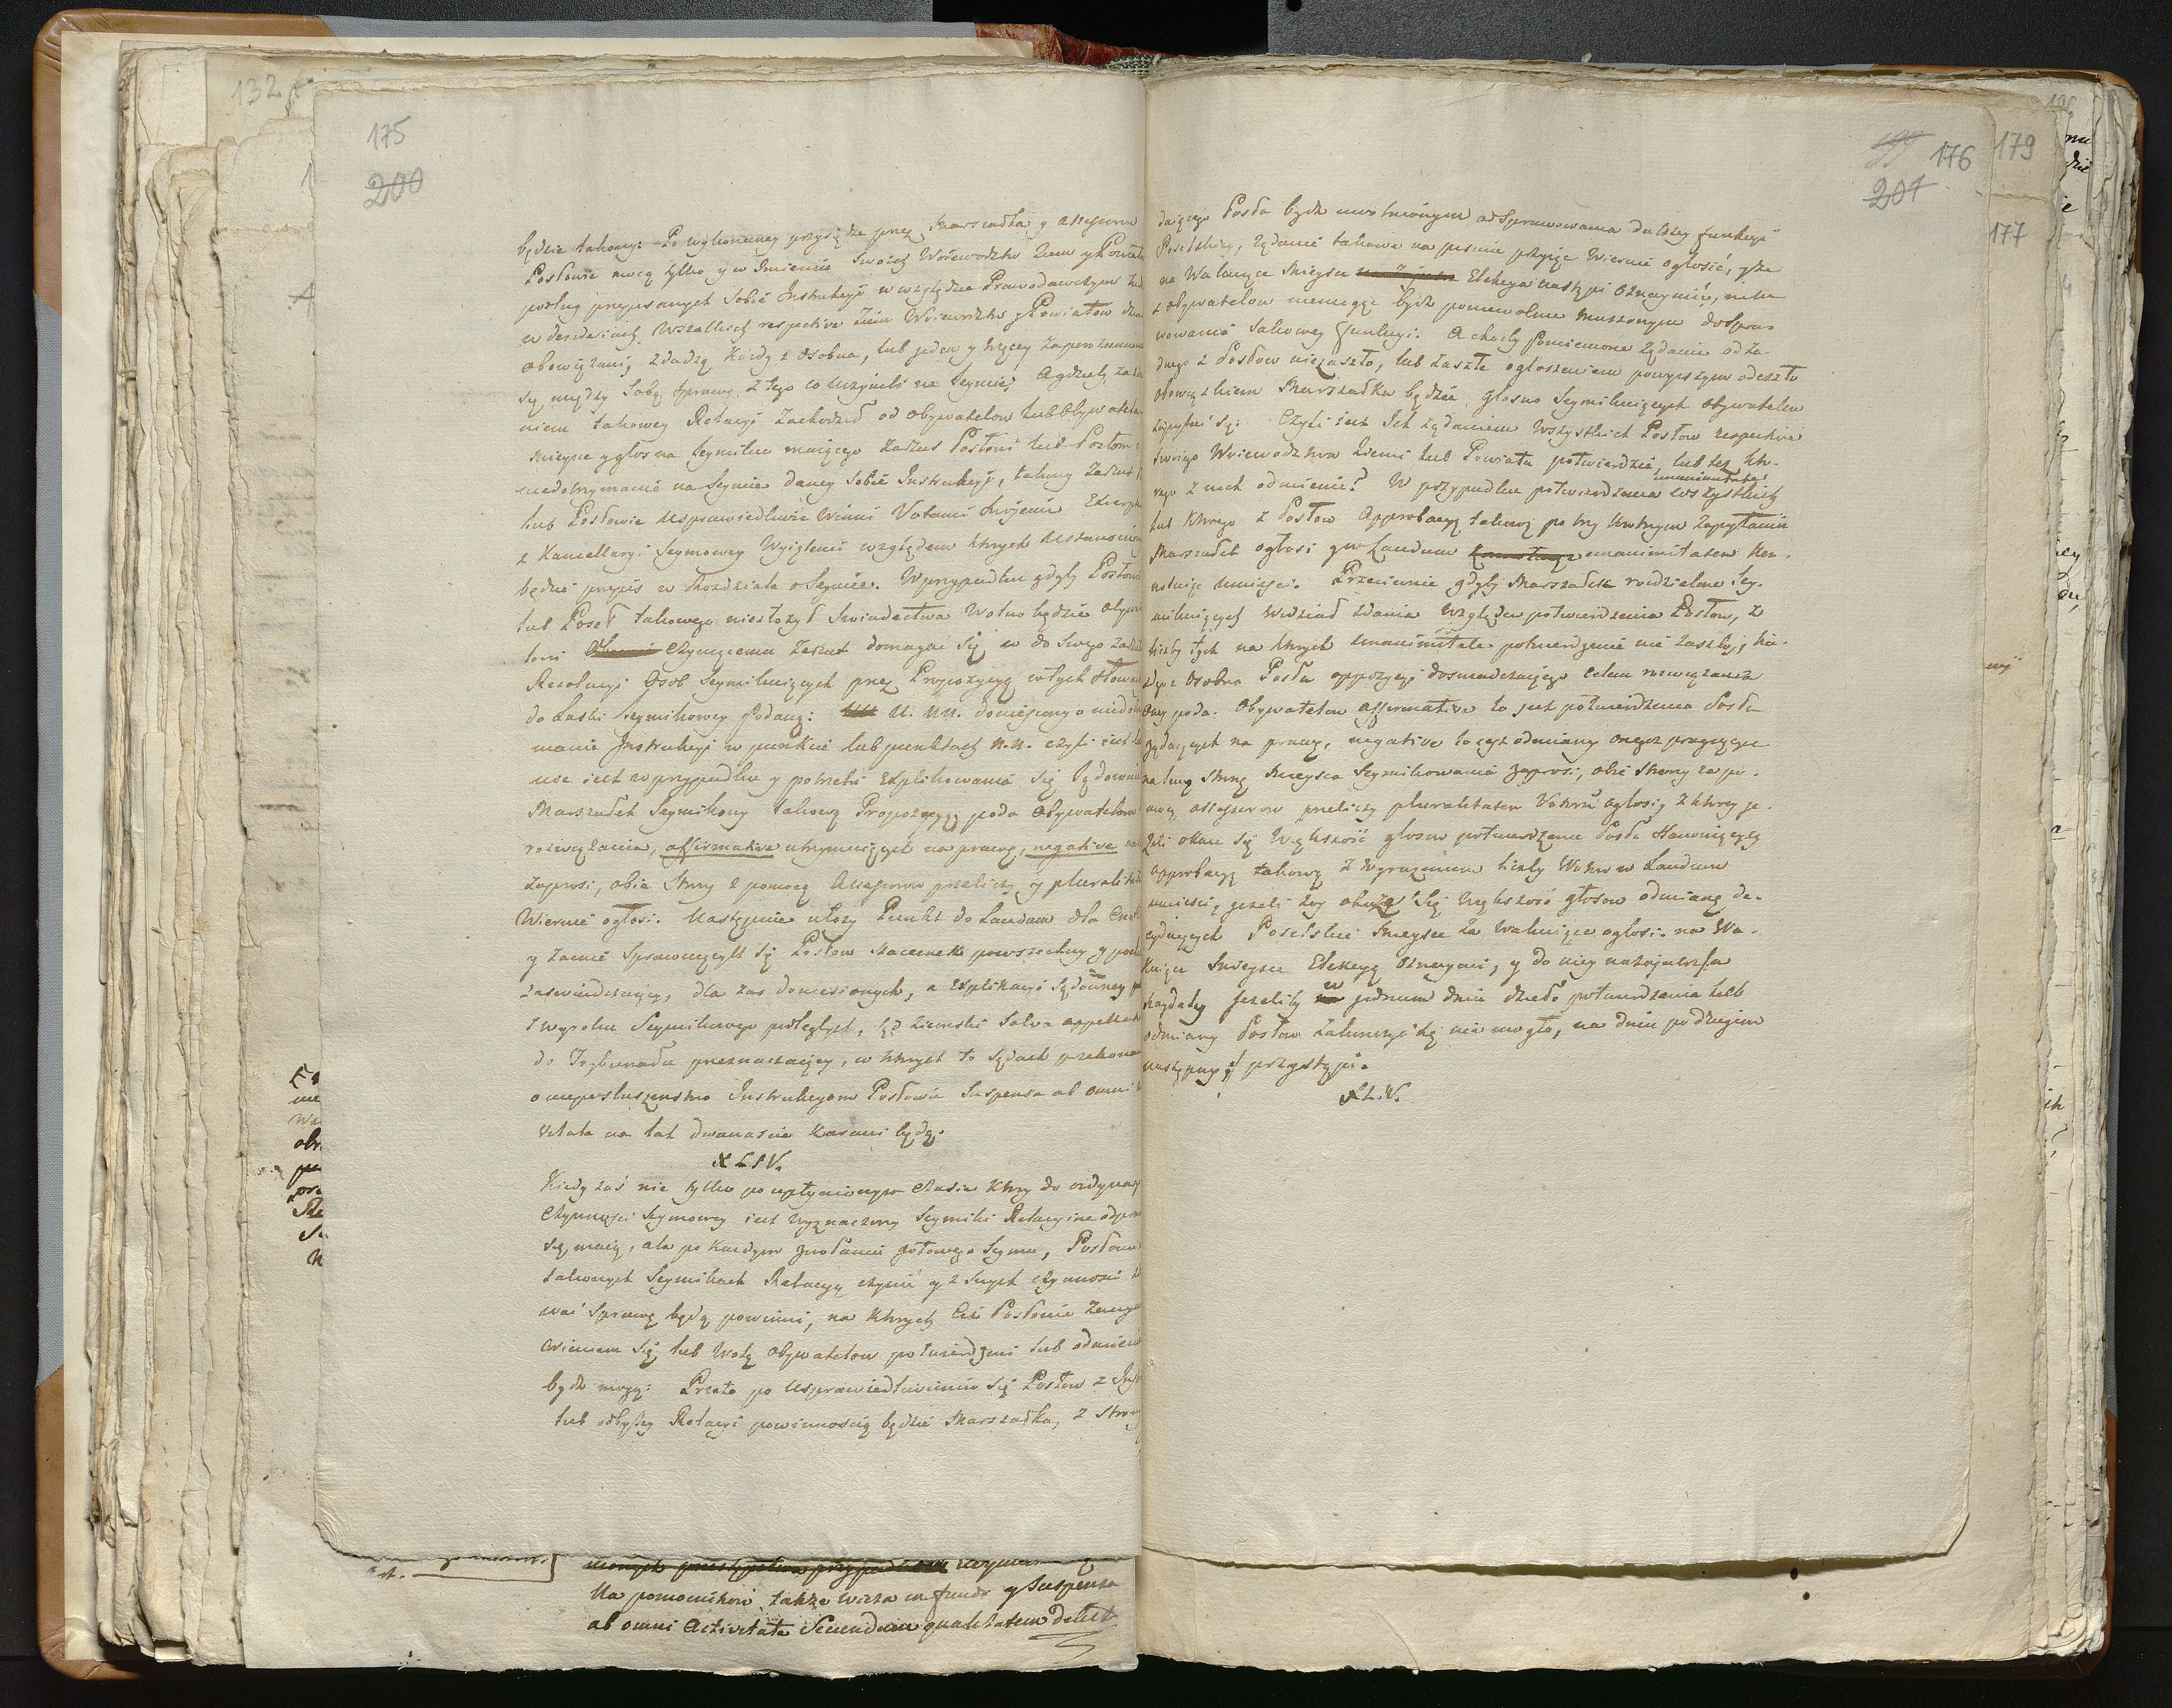 132
175
200
będzie takowy: Po wykonaney przysiędze przez Marszałka y Assessorow
Posłowie mocą tylko y w Imieniu swoich Woiewodztw Ziem y Powiat
podług przepisanych sobie Instrukcyi w względzie Prawodawczym
w desideriach wszelkich respective Ziem Woiewodztw y Powiatow
obowiązani, zdadzą każdy z osobna, lub jeden y więcey za porozumie
się między sobą sprawę z tego co uczynili na Seymie; A gdzieby za
niem takowey Relacyi zachodził od obywatelow lub obywatela
mieysce y głos na Seymiku maiącego zarzut Posłowi lub Posłom
niedotrzymanie na Seymie daney sobie Instrukcyi, takowy zarzut
lub Posłowie usprawiedliwić winni Votami swojemi Excerpt
z Kancellaryi Seymowey wyiętemi względem ktorych ustanowiony
będzie przepis w Rozdziale o Seymie. W przypadku gdyby Posłowie
lub Poseł takowego niezłożył swiadectwa wolno będzie obywa
lowi czyniącemu zarzut domagać się do swego za
Rezolucyi Osob Seymikuiących przez Propozycyą w tych słowa
do Laski Seymikowey podaną: N. NN. doniesiony o niedo
manie Instrukcyi w punkcie lub punktach N.N. czyli iest
nie iest w przypadku y potrzebie explikowania się Sądowni
Marszałek Seymikowy takową Propozycyą poda Obywatelom
rozwiązania, affirmative utrzymuiących na prawą, negative na
zaprosi, obie strony z pomocą Assessorow przeliczy y pluralitate
Wiernie ogłosi. Następnie ułoży Punkt do Laudum dla
y zacnie sprawuiących się Posłow szacunek powszechny y po
zaswiadczaiący, dla zas doniesionych, a explikacyi Sądowney
z wyroku Seymikowego podległych, Sąd Ziemski Salva appellat
do Trybunału przeznaczaiący, w ktorych to Sądach przekona
o nieposłuszenstwo Instrukcyom Posłowie Suspensa ab omni
vitate na lat dwanascie karani będą.
XLIV.
Kiedy zaś nie tylko po upłynionym czasie ktory do ordynar
czynności Seymowey iest wyznaczony Seymiki Relacyine odpra
się maią, ale po każdym zwołaniu gotowego Seymu, Posłowie
takowych Seymikach Relacyą czynić y z swych czynności
wać sprawę będą powinni, na ktorych Ciż Posłowie
wieniem się lub wolą Obywatelow potwierdzeni lub odmieni
bydz mogą: Przeto po usprawiedliwieniu się Posłow z
lub odbytey Relacyi powinnością będzie Marszałka, z strony
monych przestępstwa przypadkow
Na pomocnikow także wieża in fundo y Suspensa
ab omni Activitate Secundum qualitatem delicti
176
201
179
177
daiącego Posła bydz uwolnionym od sprawowania dalszey funkcyi
Poselskiey, żądanie takowe na pismie przyięte wiernie ogłosić, y że
na Wakuiące mieysce Elekcya nastąpi oznaymić, nikt
z obywatelow niemogąc bydz poniewolnie muszonym do spra-
wowania takowey funkcyi. A chocby pomienione żądanie od ża-
dnego z Posłow niezaszło, lub zaszłe ogłoszeniem powyższym odeszło
obowiązkiem Marszałka będzie głosno Seymikuiących obywatelow
zapytać się: Czyli iest Ich żądaniem wszystkich Posłow respective
swoiego Woiewodztwa Ziemi lub Powiatu potwierdzić, lub też kto-
rego z nich odmienić? W przypadku potwierdzenia unanimitate wszystkich
lub ktorego z Posłow Approbacyą takową po trzy krotnym zapytaniu
Marszałek ogłosi y w Laudum unanimitatem ken-
notuiąc umiesci. Przeciwnie gdyby Marszałek rozdzielone Sey-
mikuiących widział zdania względem potwierdzenia Posłow, z
liczby tych na ktorych unanimitate potwierdzenie nie zaszło, ka-
żdego z osobna Posła oppozycyi doswiadczaiącego celem rozwiązania
Oney poda. Obywatelow affirmative to jest potwierdzenia Posła
żądaiących na prawą, negative to iest odmiany onegoż pragnących
na lewą stronę mieysca Seymikowania zaprosi, obie strony za po-
mocą assessorow przeliczy pluralitatem Votorum ogłosi, z ktorey je-
żeli okaże się większość głosow potwierdzenie Posła stanowiących
approbacyą takową z wyrażeniem liczby Wotow w Laudum
umiesci, jeżeli zaś okaże się większość głosow odmianę de-
cyduiących Poselskie mieysce za wakuiące ogłosi. na Wa-
kuiące mieysce Elekcyą oznaymi, y do niey nazajutrz
każdaby jeżeliby w jednym dniu dzieło potwierdzenia lub
odmiany Posłow zakonczyć się nie mogło, na dniu po drugim
następnym przystąpi.
XLV.